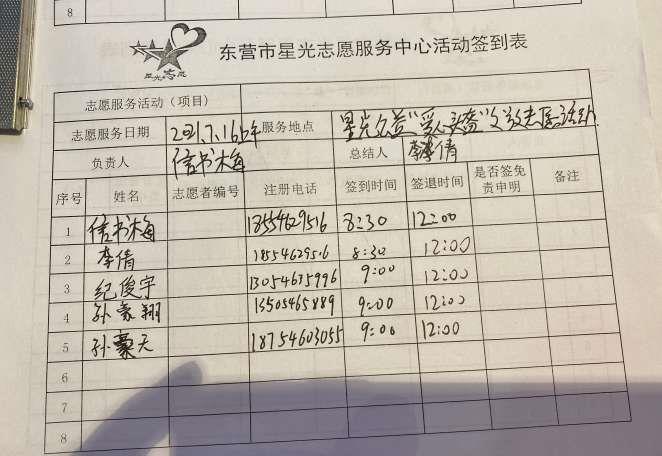 8
星光志愿
东营市星光志愿服务中心活动签到表
志愿服务活动（项目）
志愿服务日期 2021.7.16上午 服务地点 星光公益"爱心头盔"
负责人 信书梅 总结人 李倩
序号 姓名 志愿者编号 注册电话 签到时间 签退时间 是否签免责申明 备注
1 信书梅 13554629516 8:30 12:00
2 李倩 18554629506 8:30 12:00
3 纪俊宇 13054675996 9:00 12:00
4 孙豪翔 13505465889 9:00 12:00
5 孙豪天 18754603055 9:00 12:00
6
7
8